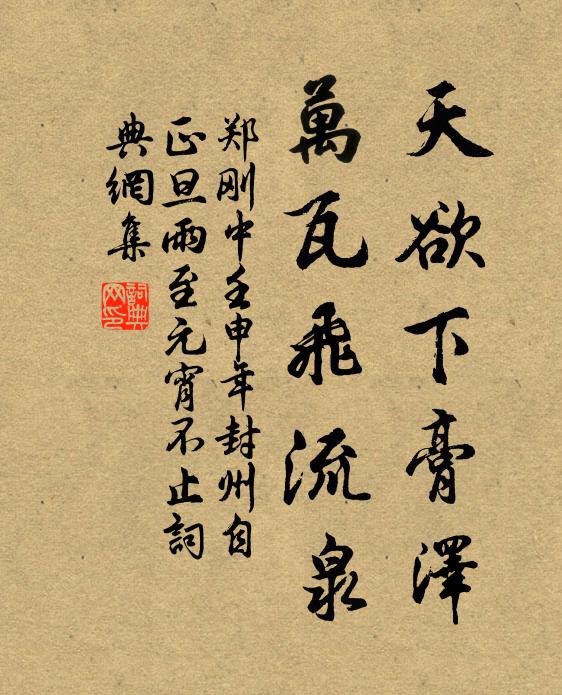 天欲下膏澤
萬瓦飛流泉
郑刚中壬申年封州自
正旦雨至元宵不止詞
典網集
詞典
网印